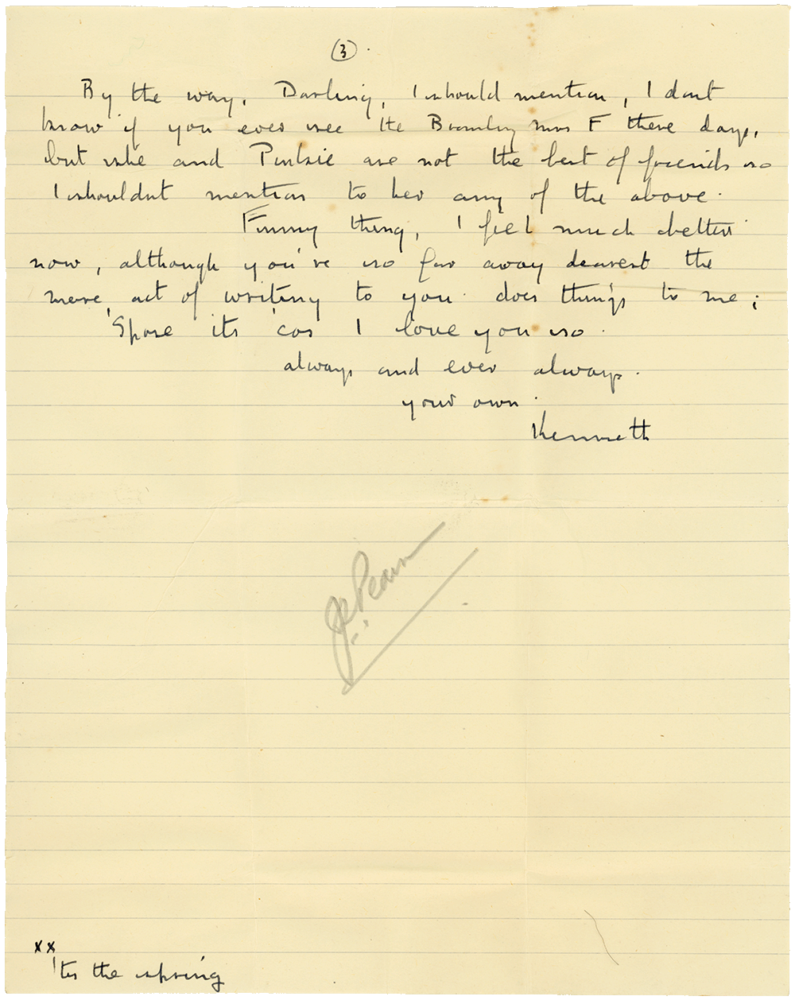 (3).
By the way, Darling, I should mention, I dont
know if you ever see the Bromley Mrs F these days,
but she and Pinksie are not the best of friends so
I shouldnt mention to her any of the above.
Funny thing, I feel much better
now, although you're so far away dearest the
mere act of writing to you does things to me;
'Spose its 'cos I love you so.
always and ever always.
your own.
Kenneth
xx
'tis the spring